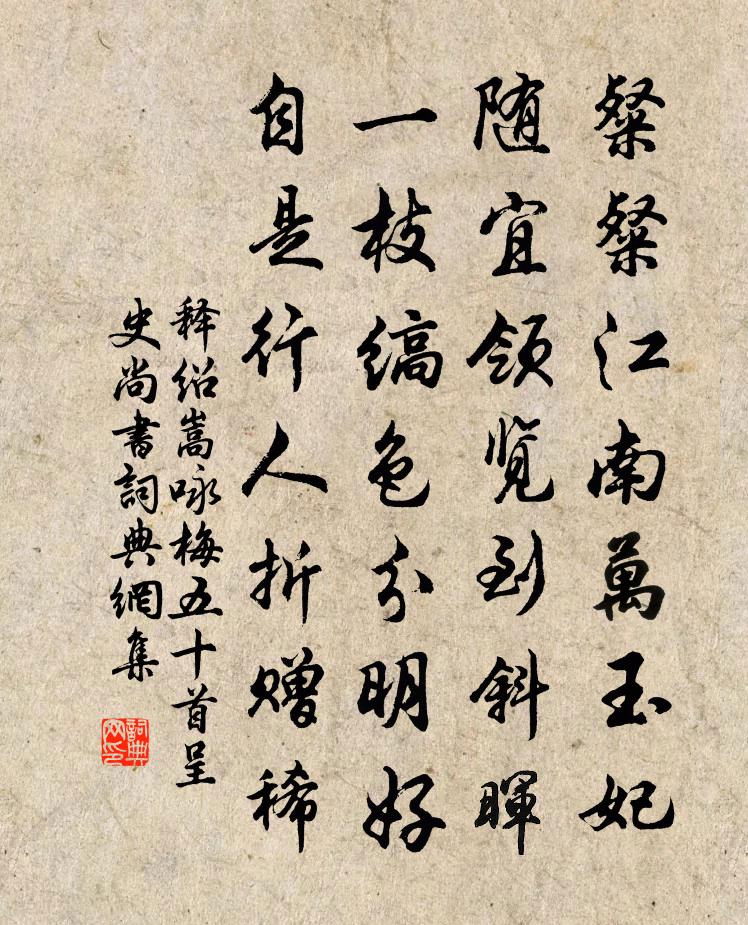 粲粲江南萬玉妃
随宜領覽到斜暉
一枝縞色分明好
自是行人折贈稀
释紹嵩咏梅五十首呈
史尚書詞典網集
詞典网印